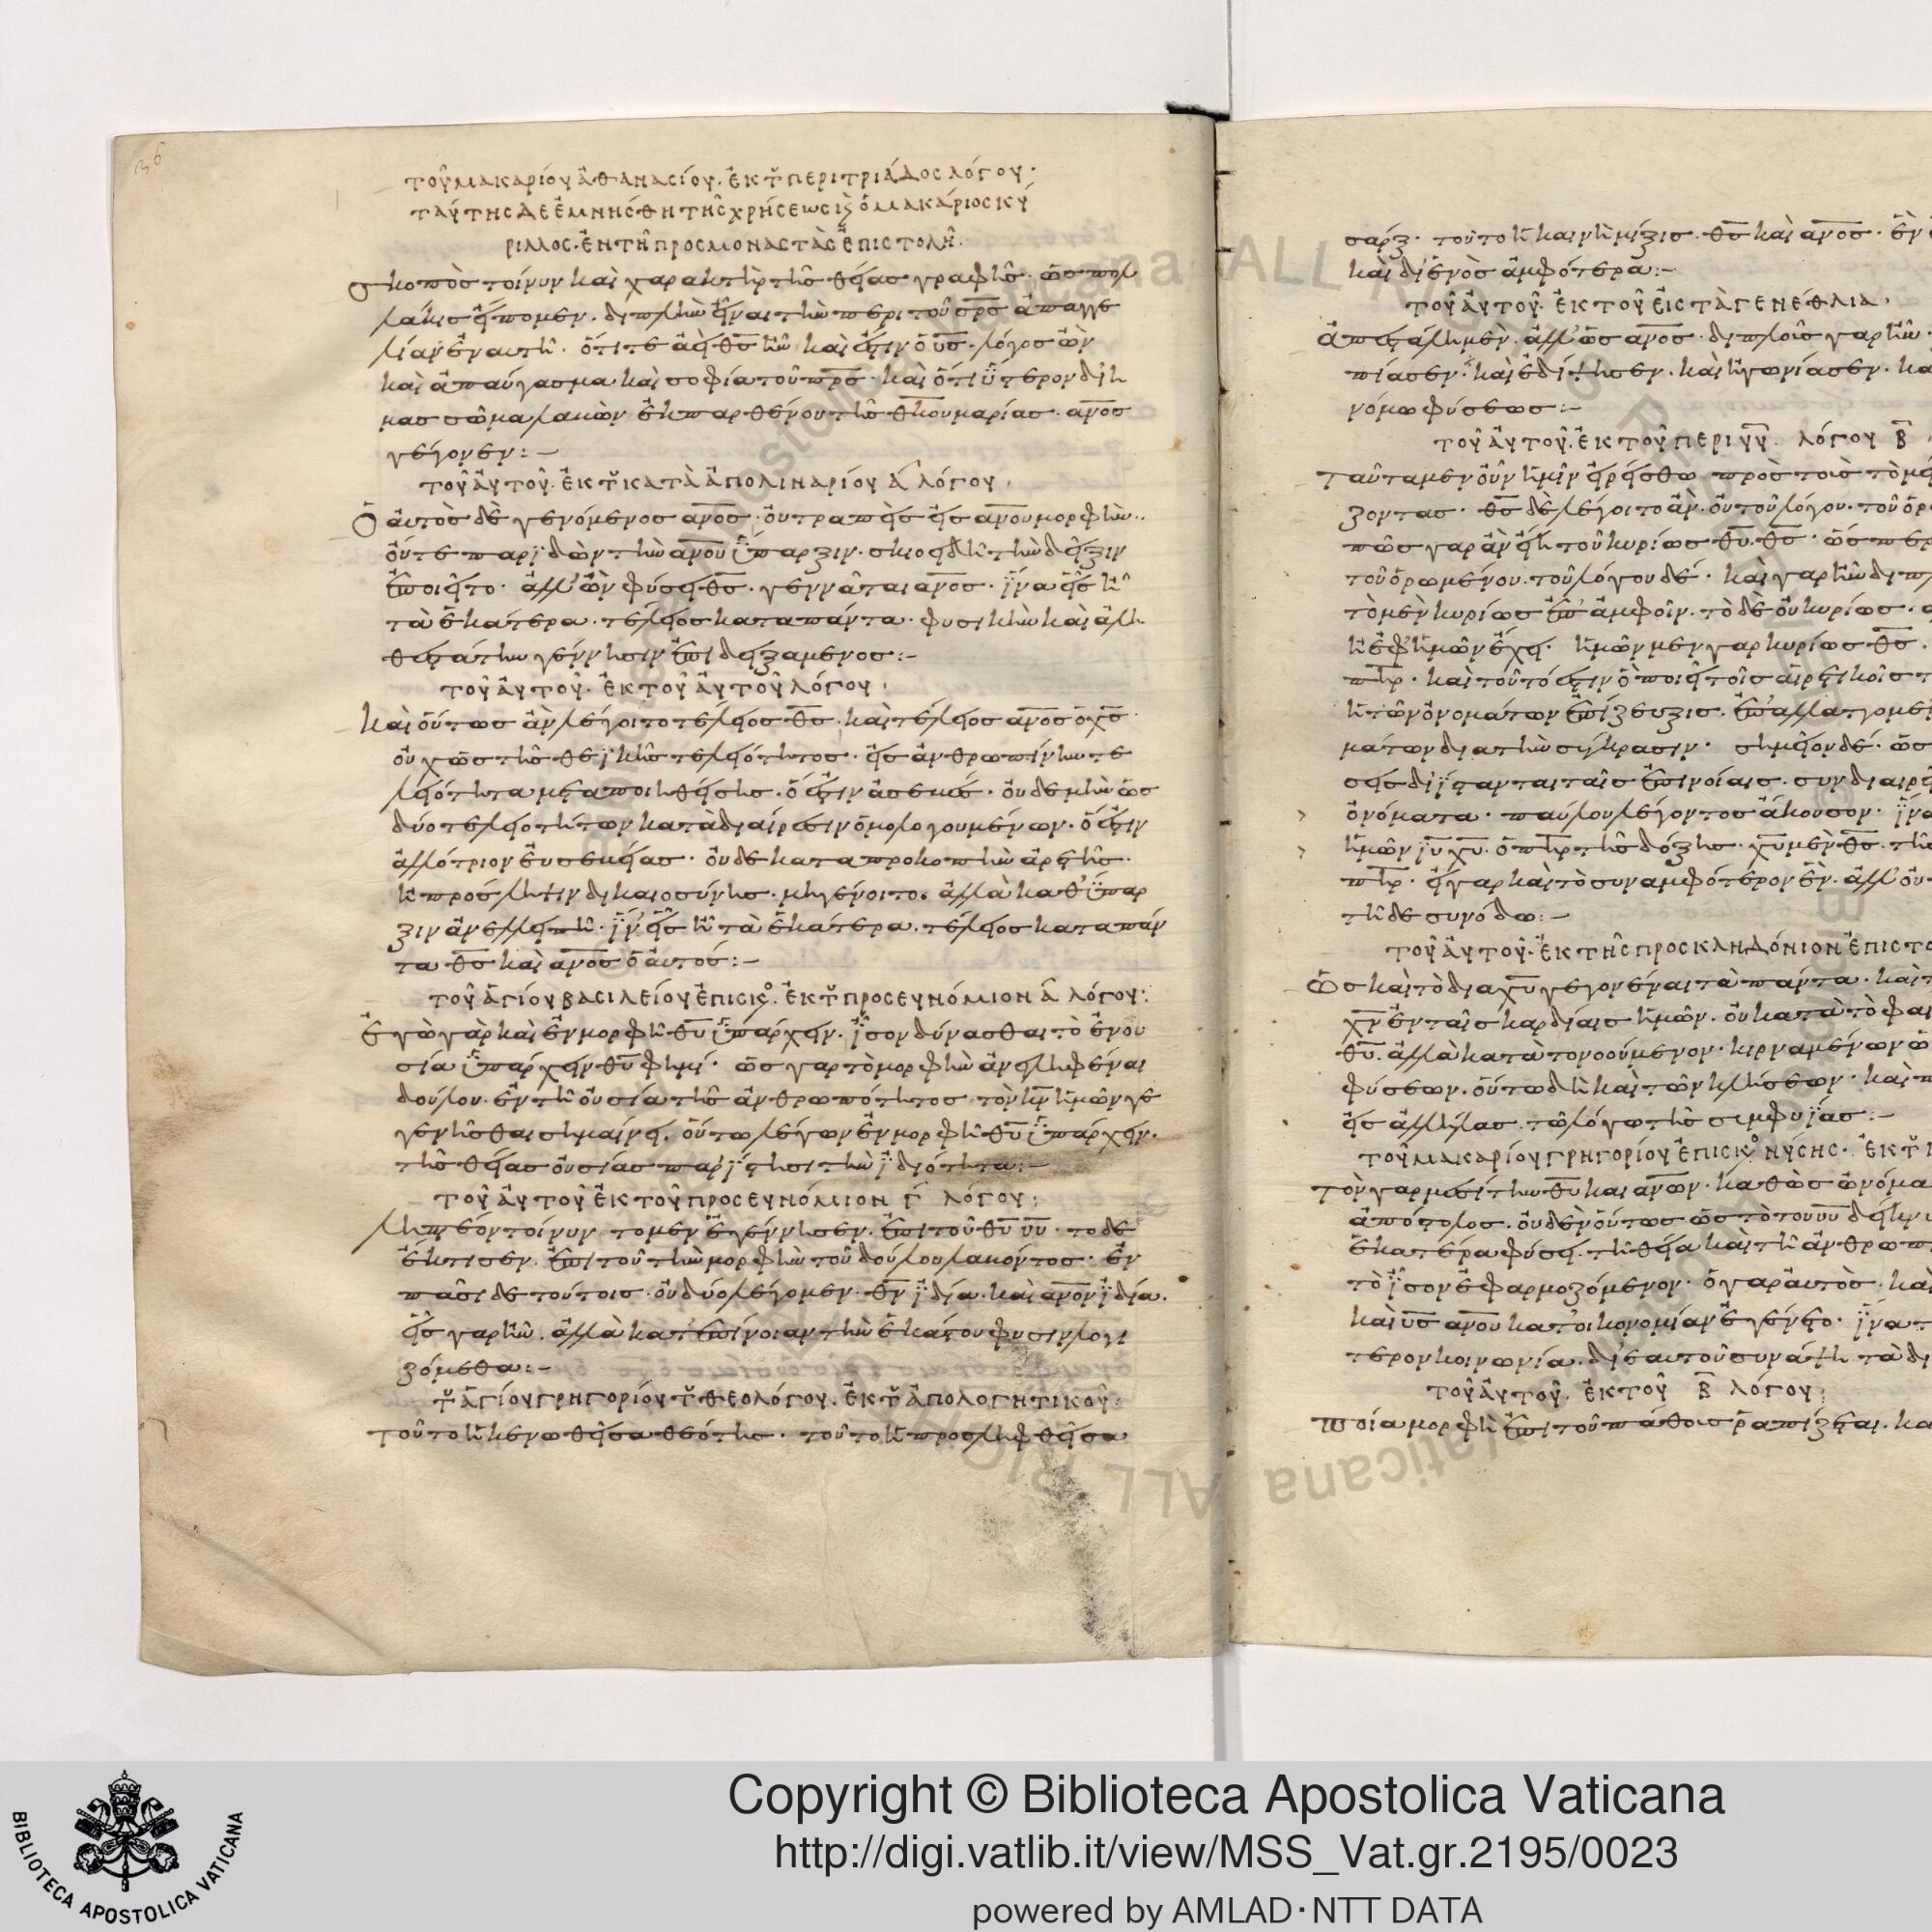 36
τοῦ μακαρίου ἀθανασίου. ἐκ τοῦ περι τριάδος λόγου·
ταύτης δε ἐμνήσθη τῆς χρήσεως ὁ μακάριος κύ
ριλλος. ἐν τῆ προς μοναστὰς ἐπιστολῆ.
σκοπὸς τοίνυν καὶ χαρακτὴρ τῆς θείας γραφῆς. ὡς πολ
λάκις εἴπομεν. διπλὴν εἶναι τὴν περι τοῦ σρσ ἀπαγγε
λίαν ἐν αυτῆ. ὅτι τε ἀεὶ θς ἦν καὶ ἐστιν ὁ υς. λόγος ὢν
καὶ ἀπαύγασμα καὶ σοφία τοῦ πρς. καὶ ὅτι ὕστερον δι ἡ
μας σῶμα λαβὼν ἐκ παρθένου τῆς θκου μαρίας. ανος
γέγονεν:-
τοῦ ἀυτοῦ. ἐκ τοῦ κατὰ ἀπολιναρίου α λόγου.
Ὁ ἀυτὸς δὲ γενόμενος ανος. ὀυ τραπεὶς εἰς ανου μορφὴν..
ὀύτε παριδὼν τὴν ανου ὕπαρξιν. σκιοειδῆ τὴν δεῖξιν
ἐποιεῖτο. ἀλλ' ὢν φύσει θς. γεννᾶται ανος. ἵνα εἷς ἦ
τὰ ἑκάτερα. τέλειος κατα πάντα. φυσικὴν καὶ ἀλη
θεστάτην γέννησιν ἐπιδειξαμενος:-
τοῦ ἀυτοῦ. ἐκ τοῦ ἀυτοῦ λόγου.
καὶ ὀύτως ἂν λέγοιτο τέλειος θς. καὶ τέλειος ανος ὁ χς
ὀυχ ὡς τῆς θεϊκῆς τελειότητος. εἰς ἀνθρωπίνην τε
λειότητα μεταποιηθείσης. ὅ ἐστιν ἀσεβές. ὀυδε μὴν ὡς
δύο τελειοτήτων κατὰ διαίρεσιν ὁμολογουμένων. ὅ ἐστιν
ἀλλότριον ἐυσεβείας. ὀυδε κατα προκοπὴν ἀρετῆς.
ἢ πρόσληψιν δικαιοσύνης. μὴ γένοιτο. ἀλλὰ καθ' ὕπαρ
ξιν ἀνελλειπῆ. ἵν' εἷς ἦ τὰ ἑκάτερα. τέλειος κατα πάν
τα θς καὶ ανος ὁ ἀυτός:-
τοῦ ἁγίου βασιλείου ἐπισκο. ἐκ τοῦ προς ευνόμιον α λόγου:
ἐγὼ γὰρ καὶ ἐν μορφῆ θυ ὑπάρχειν. ἴσον δύνασθαι τὸ ἐν ου
σία ὑπάρχειν θυ φημί. ὡς γαρ τὸ μορφὴν ἀνειληφέναι
δούλου. ἐν τῆ ὀυσία τῆς ἀνθρωπότητος τὸν κν ἡμῶν γε
γενῆσθαι σημαίνει. ὀύτω λέγων ἐν μορφῆ θυ ὑπάρχειν.
τῆς θείας ὀυσίας παρίστησι τὴν ἰδιότητα:-
τοῦ ἀυτοῦ ἐκ τοῦ προς ευνόμιον γ λόγου:
ληπτέον τοίνυν το μεν ἐγέννησεν. ἐπι τοῦ θυ υυ. το δε
ἔκτισεν. ἐπι τοῦ τὴν μορφὴν τοῦ δούλου λαβόντος. ἐν
πᾶσι δε τούτοις. ὀυ δύο λέγομεν. θν ἰδία. καὶ ανον ἰδία.
εἷς γαρ ἦν. ἀλλὰ κατ' ἐπίνοιαν τὴν ἑκάστου φυσιν λογι
ζόμεθα:-
τοῦ ἁγίου γρηγορίου τοῦ θεολόγου. ἐκ τοῦ ἀπολογητικοῦ:
τοῦτο ἡ κενωθεῖσα θεότης. τοῦτο ἡ προσληφθεῖσα
σαρξ. τοῦτο ἡ καινὴ μίξις. θς καὶ ανος. ἓν
καὶ δι ἑνὸς ἀμφότερα:-
τοῦ ἀυτοῦ. ἐκ τοῦ εἰς τὰ γενέθλια.
ἀπεστάλη μὲν. ἀλλ' ὡς ανος. διπλοῦς γαρ ἦν.
πίασεν. καὶ ἐδίψησεν. καὶ ἠγωνίασεν. κα
νόμω φύσεως:-
τοῦ ἀυτοῦ. ἐκ τοῦ περι υυ. λόγου β
ταῦτα μεν ὀῦν ἡμῖν εἰρείσθω προς τοὺς τὸ
ζοντας. θς δὲ λέγοιτο ἂν. ὀυ τοῦ λόγου. τοῦ ὁρ
πῶς γαρ ἂν εἴη τοῦ κυρίως θυ. θς. ὥσπερ
τοῦ ὁρωμένου. τοῦ λόγου δέ. καὶ γαρ ἦν διπλ
τὸ μὲν κυρίως ἐπ' ἀμφοῖν. τὸ δὲ ὀυ κυρίως.
ἢ ἐφ' ἡμῶν ἔχει. ἡμῶν μεν γαρ κυρίως θς.
πηρ. καὶ τοῦτό ἐστιν ὃ ποιεῖ τοῖς αἱρετικοῖς τ
ἡ τῶν ὀνομάτων ἐπίζευξις. ἐπαλλαττομέ
μάτων δια τὴν σύγκρασιν. σημεῖον δέ. ὡς
σεις διΐστανται ταῖς ἐπινοίαις. συνδιαιρε
ὀνόματα. παύλου λέγοντος ἄκουσον. ἵνα
ἡμῶν ιυ χυ. ὁ πηρ τῆς δόξης. χυ μὲν θς. τῆ
πηρ. εἰ γαρ καὶ τὸ συναμφότερον ἓν. ἀλλ' ὀυ
τῆ δε συνόδω:-
τοῦ ἀυτοῦ. ἐκ τῆς προς κληδόνιον ἐπιστο
Ὡς καὶ τὸ δια χυ γεγονέναι τὰ πάντα. καὶ
χν ἐν ταῖς καρδίαις ἡμῶν. ὀυ κατὰ τὸ φαι
θυ. ἀλλὰ κατὰ το νοούμενον. κιρναμένων
φύσεων. ὀύτω δὴ καὶ τῶν κλήσεων. καὶ
εἰς ἀλλήλας. τῶ λόγω τῆς συμφυΐας:-
τοῦ μακαρίου γρηγορίου ἐπισκο νύσης. ἐκ τοῦ
τὸν γαρ μεσίτην θυ και ανων. καθὼς ὠνόμα
ἀπόστολος. ὀυδὲν ὀύτως ὡς τὸ του υυ δείκν
ἑκατέρα φύσει. τῆ θεία καὶ τῆ ἀνθρωπ
τὸ ἴσον ἐφαρμοζόμενον. ὁ γαρ ἀυτὸς. καὶ
καὶ υς ανου κατ' οικονομίαν ἐγένετο. ἵνα τ
τερον κοινωνία. δι' εαυτοῦ συνάψη τὰ δι
τοῦ ἀυτοῦ. ἐκ τοῦ β λόγου:
ποία μορφὴ ἐπι τοῦ πάθους ῥαπίζεται. κα
Copyright © Biblioteca Apostolica Vaticana
http://digi.vatlib.it/view/MSS_Vat.gr.2195/0023
powered by AMLAD·NTT DATA
BIBLIOTECA APOSTOLICA VATICANA